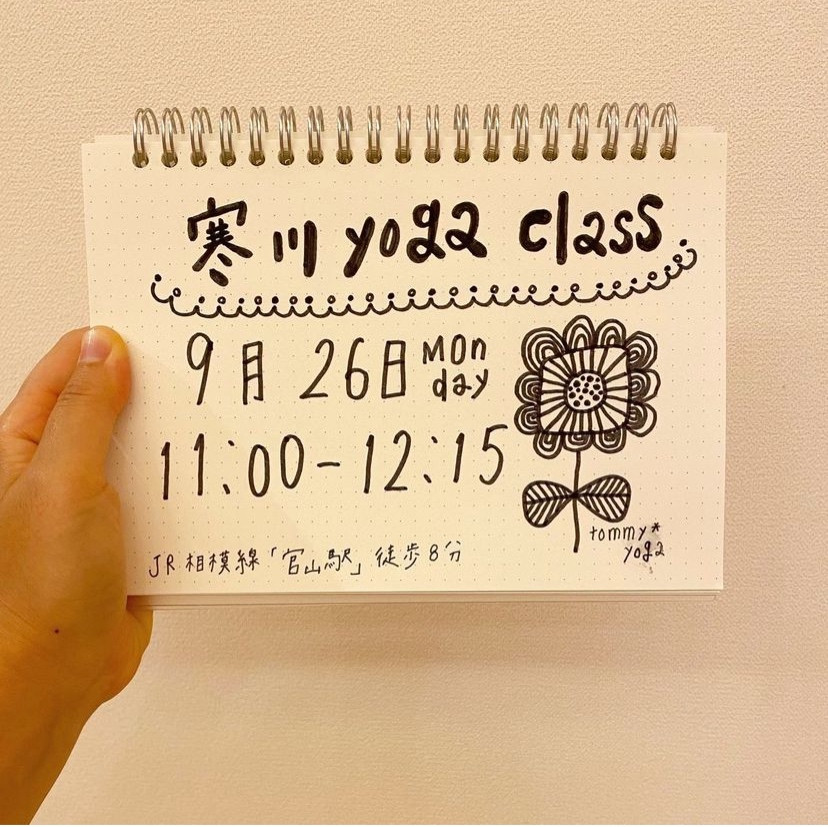 寒川 yoga class
9月 26日 MOn day
11:00-12:15
JR 相模線「宮山駅」徒歩8分
tommy*
yoga